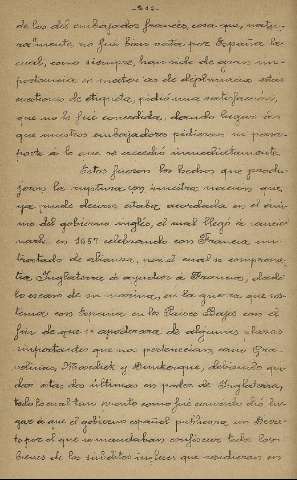 -212-
de los del embajador francés, cosa que, natu-
ralmente no fué bien vista por España la
cual, como siempre, han sido de gran im-
portancia en materias de diplomacia estas
cuestiones de etiqueta, pidió una satisfacción,
que no le fué concedida, dando lugar á
que nuestros embajadores pidieran su pasa-
porte á lo que se accedió inmediatamente.
Estos fueron los hechos que produ-
jeron la ruptura con nuestra nacion, que,
ya puede decirse estaba acordada en el áni-
mo del gobierno inglés, el cual llegó á
en 1657 celebrando con Francia un
tratado de alianza, por el cual se comprome-
tia Inglaterra á ayudar á Francia, dado
lo escaso de su marina, en la guerra que sos-
tenia con España en los Paises Bajos con el
fin de que se apoderara de algunas plazas
importantes que nos pertenecian, como Gra-
velinas, Mardick y Dunkerque, debiendo que-
dar estas dos últimas en poder de Inglaterra,
todo lo cual tan pronto como fué conocido dió lu-
gar á que el gobierno español publicara un Decre-
to por el que se mandaban confiscar todos los
bienes de los súbditos ingleses que residieran en